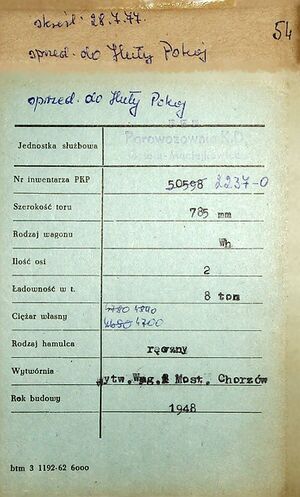 skreśl. 28.7.77.
54
sprzed. do Huty Pokój
sprzed. do Huty Pokój
PKP
Jednostka służbowa Parowozownia K.D.
Nr inwentarza PKP 50598 2237-0
Szerokość toru 785 mm
Rodzaj wagonu Wh
Ilość osi 2
Ładowność w t. 8 ton
4780 4840
Ciężar własny 4680 4700
Rodzaj hamulca ręczny
Wytwórnia Wytw. Wag. i Most. Chorzów
Rok budowy 1948
btm 3 1192-62 6000